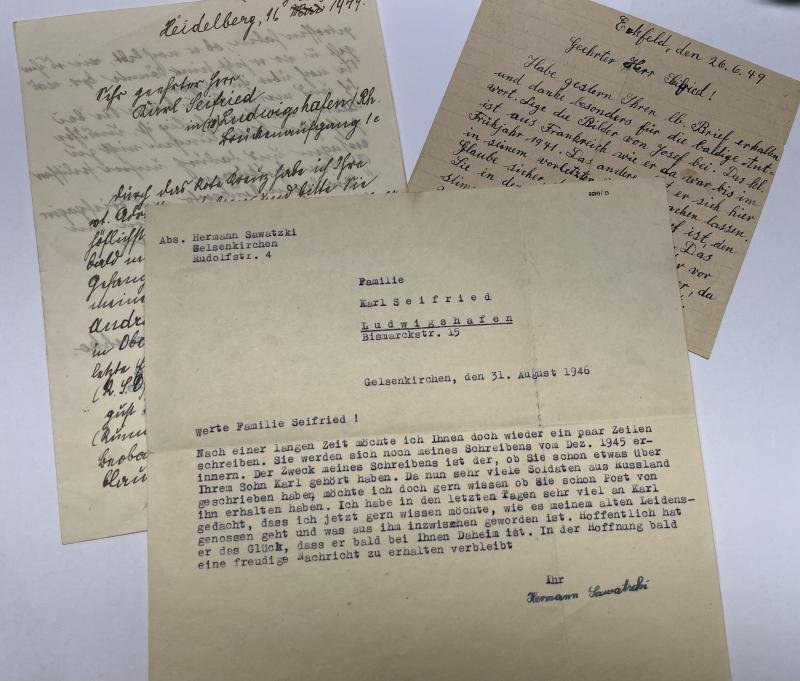 Heidelberg, 16 1949.
Sehr geehrter Herr
Karl Seifried
in Ludwigshafen/Rh.
Brückenaufgang 1c
Durch das Rote Kreuz habe ich Ihre
und bitte Sie
höflichst
bald
Gefang
meine
Andr
in Obe
letzte
gust
(Rum
beoba
Eckfeld, den 26.6.49
Geehrter Herr Seifried!
Habe gestern Ihren lb. Brief erhalten
und danke besonders für die baldige Ant-
wort. Lege die Bilder von Josef bei. Das kl.
ist aus Frankreich wie er da war bis im
Frühjahr 1941. Das andere er sich hier
in seinem vorletzten lassen.
Glaube sicher ist, den
Sie in de Das
stim vor
da
2290/D
Abs. Hermann Sawatzki
Gelsenkirchen
Rudolfstr. 4
Familie
Karl Seifried
Ludwigshafen
Bismarckstr. 15
Gelsenkirchen, den 31. August 1946
Werte Familie Seifried !
Nach einer langen Zeit möchte ich Ihnen doch wieder ein paar Zeilen
schreiben. Sie werden sich noch meines Schreibens vom Dez. 1945 er-
innern. Der Zweck meines Schreibens ist der, ob Sie schon etwas über
Ihrem Sohn Karl gehört haben. Da nun sehr viele Soldaten aus Russland
geschrieben haben, möchte ich doch gern wissen ob Sie schon Post von
ihm erhalten haben. Ich habe in den letzten Tagen sehr viel an Karl
gedacht, dass ich jetzt gern wissen möchte, wie es meinem alten Leidens-
genossen geht und was aus ihm inzwischen geworden ist. Hoffentlich hat
er das Glück, dass er bald bei Ihnen Daheim ist. In der Hoffnung bald
eine freudige Nachricht zu erhalten verbleibt
Ihr
Hermann Sawatzki